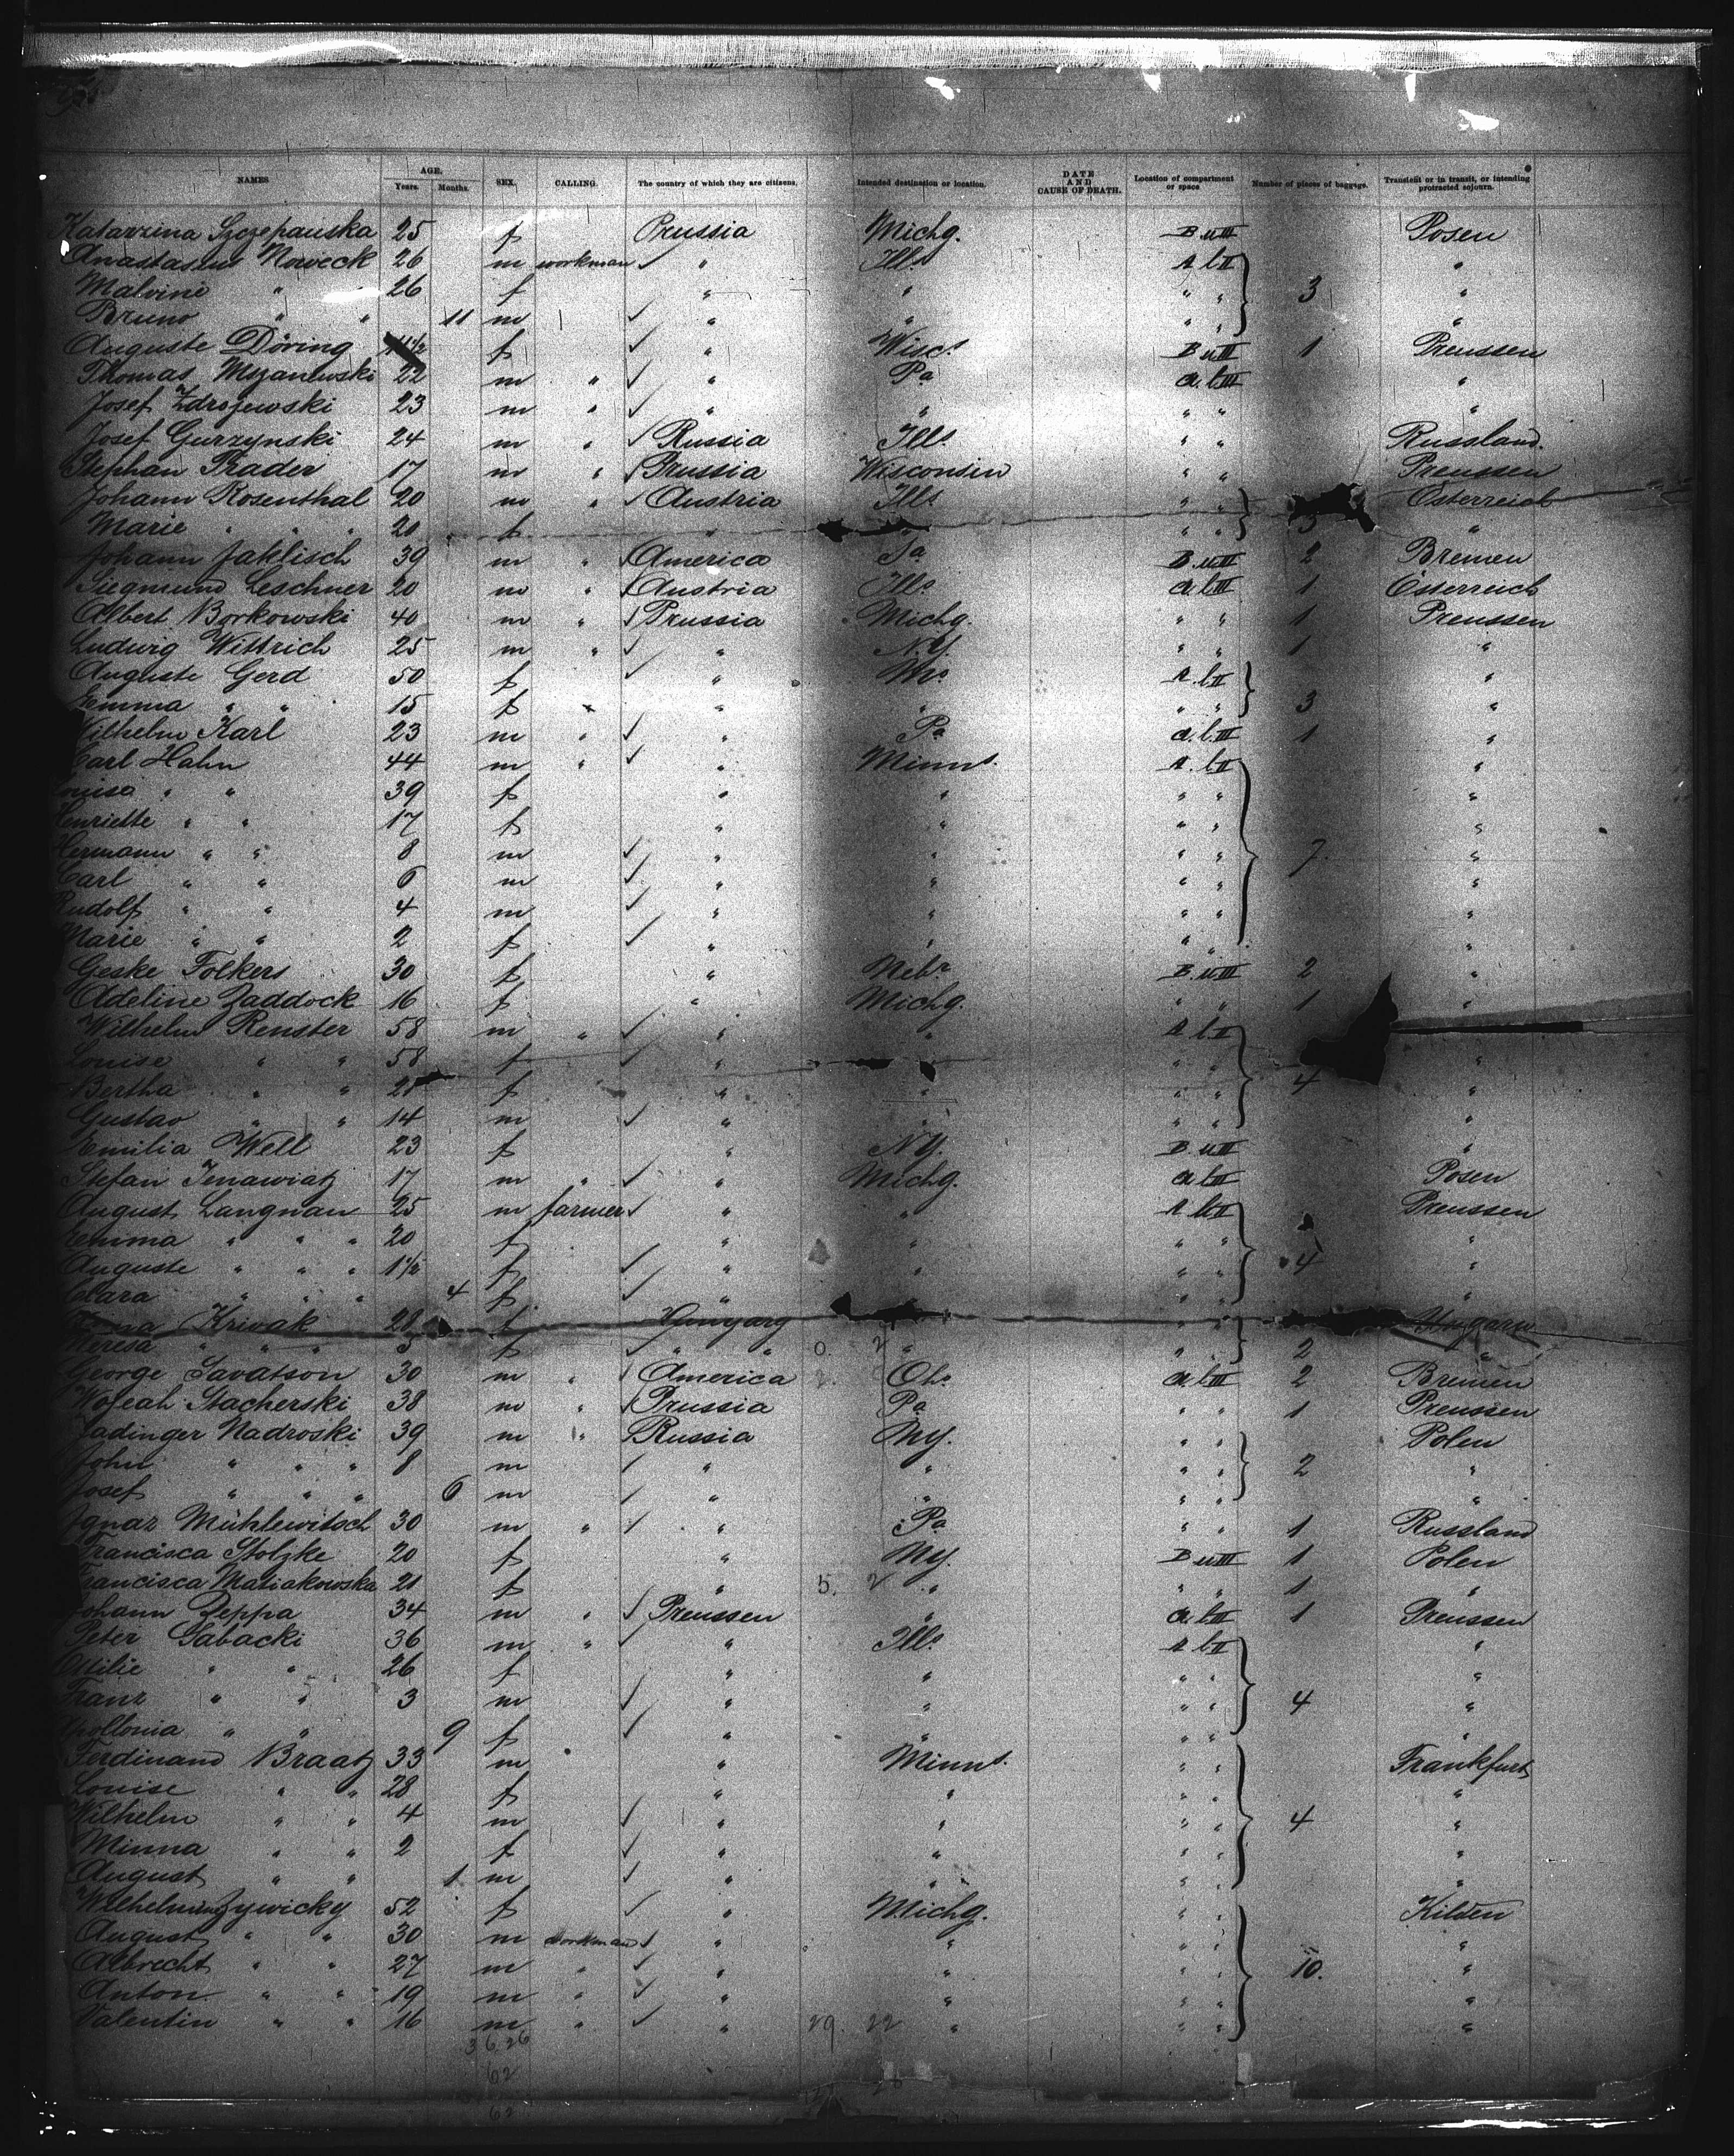 NAMES AGE. Years. Months. SEX. CALLING. The country of which they are citizens. Intended destination or location. DATE AND CAUSE OF DEATH. Location of compartment or space Number of pieces of baggage. Transient or in transit, or intending protracted sojourn.
Katarzina Szczepanska 25 f Prussia Michg. B u III Posen
Anastasius Noweck 26 m workman ✓ " Ills A l II "
Malvine " 26 f " " " " 3 "
Bruno " " 11 m ✓ " " " " "
Auguste Döring 11½ f ✓ " Wisc. B u III 1 Preussen
Thomas 22 m " ✓ " Pa a. l III "
Josef Zdrojewski 23 m " ✓ " " " " "
Josef Gurzynski 24 m " ✓ Russia Ills " " Russland
Stephan Prader 17 m " ✓ Prussia Wisconsin " " Preussen
Johann Rosenthal 20 m " ✓ Austria Ills " " Österreich
Marie " " 20 f " " " "
Johann Jaklisch 39 m " ✓ America Pa B. u III 2 Bremen
Siegmund Leschner 20 m " ✓ Austria Ills a l III 1 Österreich
Albert Borkowski 40 m " ✓ Prussia Michg. " " 1 Preussen
Ludwig Wittrich 25 m " ✓ " N.Y. " " 1 "
Auguste Gerd 50 f ✓ " A. l II "
Emma " " 15 f " " " " 3 "
Wilhelm Karl 23 m " ✓ " Pa a. l. III 1 "
Carl Hahn 44 m " ✓ " Minns. A. l II "
" " 39 f " " " " "
Henriette " " 17 f " " " " "
Hermann " " 8 m ✓ " " " " 7. "
Carl " " 6 m ✓ " " " " "
Rudolf " " 4 m ✓ " " " " "
Marie " " 2 f ✓ " " " " "
Geske Folkers 30 f " Nebr B. u III 2 "
Adeline Zaddock 16 f " Michg. " " 1 "
Wilhelm Renster 58 m " ✓ " " A l II
Louise " " 58 f ✓ " " " "
Bertha " " 21 f " " " " 4 "
Gustav " " 14 m ✓ " " " " "
Emilia Well 23 f " N.Y. B u III "
Stefan 17 m " ✓ " Michg. a l III Posen
August Langnau 25 m farmer ✓ " " A l II Preussen
Emma " " " 20 f " " " " "
Auguste " " " 1½ f ✓ " " " " 4 "
Clara " " " 4 f ✓ " " " "
Krivak f Hungary " " Ungarn
Theresa " " " f ✓ " " 0. 2 " " 2 "
George Savatson 30 m " ✓ America 2. Oh. a l III 2 Bremen
Stacherski 38 m " ✓ Prussia Pa " " 1 Preussen
Nadroski 39 m " ✓ Russia NY. " " Polen
John " " " 8 m ✓ " " " " 2 "
Josef " " " 6 m ✓ " " " " "
Ignaz Mühlewitsch 30 m " ✓ " Pa " " 1 Russland
Francisca Stolzke 20 f " NY. B u III 1 Polen
Francisca Matiakowska 21 f " 5. 2 " " " 1 "
Johann Zeppa 34 m " ✓ Preussen " a. l III 1 Preussen
Peter Gabacki 36 m " ✓ " Ills A l II "
Ottilie " " 26 f " " " " "
Franz " " 3 m ✓ " " " " 4 "
Apollonia " " 9 f ✓ " " " " "
Ferdinand Braatz 33 m " Minns. " " Frankfurt
Louise " " 28 f " " " " "
Wilhelm " " 4 m ✓ " " " " 4 "
Minna " " 2 f ✓ " " " " "
August " " 1 m ✓ " " " " "
Zywicky 52 f ✓ " Michg. " " Kilden
August " " 30 m workman ✓ " " " " "
Albrecht " " 27 m " ✓ " " " " 10. "
Anton " " 19 m " ✓ " " " " "
Valentin " " 16 m " ✓ " 29. 22 " " " "
36 26
62
62